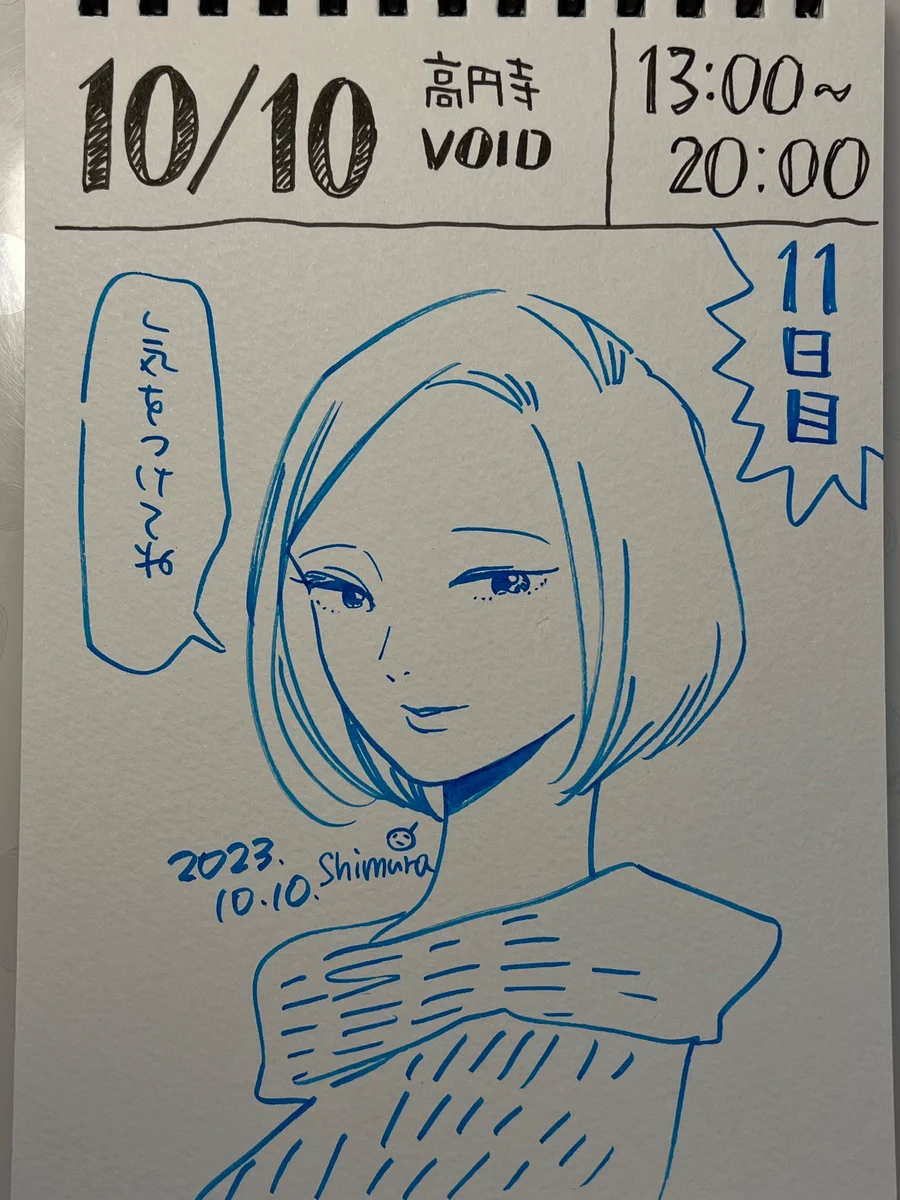 10/10
高円寺
VOID
13:00~
20:00
11日目
気をつけてね
2023.
10.10.
Shimura